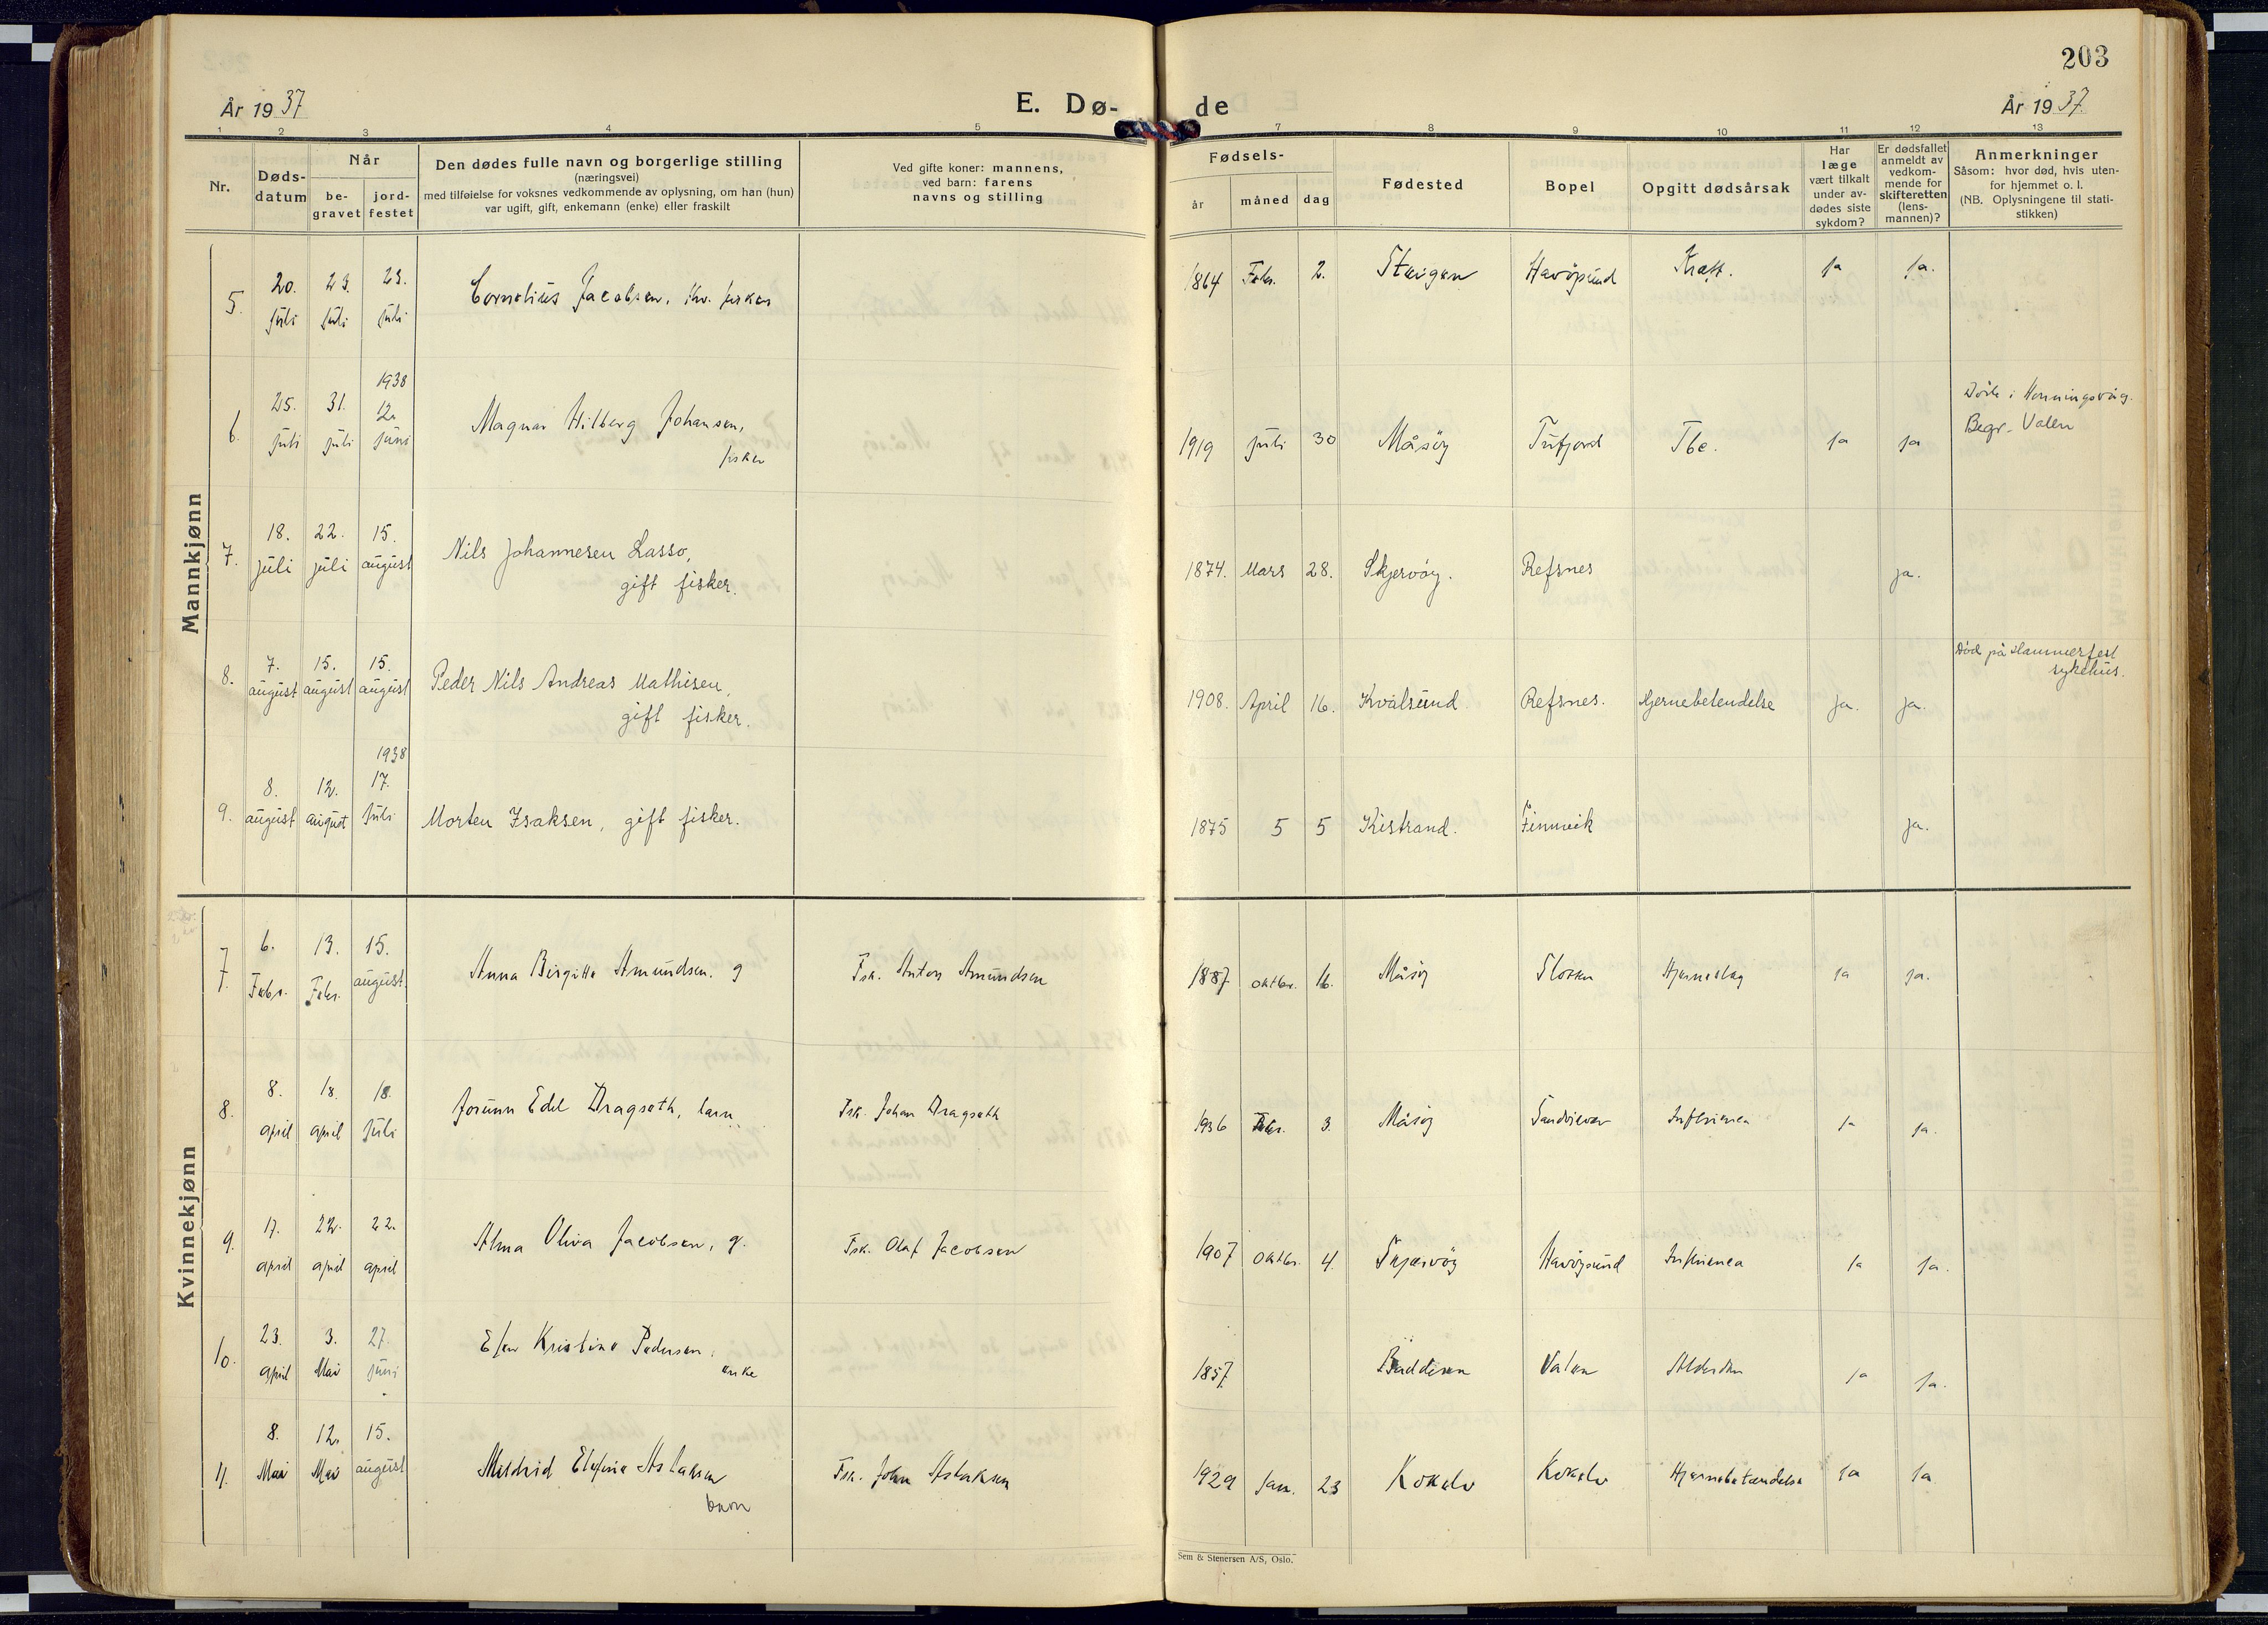 203
År 1937
E. Dø-
de
År 1937.
1 2 3 4 5 7 8 9 10 11 12 13
Nr.
Døds-
datum
Når
be-
gravet
jord-
festet
Den dødes fulle navn og borgerlige stilling
(næringsvei)
med tilføielse for voksnes vedkommende av oplysning, om han (hun)
var ugift, gift, enkemann (enke) eller fraskilt
Ved gifte koner: mannens,
ved barn: farens
navns og stilling
Fødsels-
år måned dag
Fødested
Bopel
Opgitt dødsårsak
Har
læge
vært tilkalt
under av-
dødes siste
sykdom?
Er dødsfallet
anmeldt av
vedkom-
mende for
skifteretten
(lens-
mannen)?
Anmerkninger
Såsom: hvor død, hvis uten-
for hjemmet o. l.
(NB. Oplysningene til stati-
stikken)
Mannkjønn
5. 20. juli 23. juli 23. juli Cornelius Jacobsen, fisker 1864 Febr. 2. Steigen Havöysund Kræft. ja ja.
6. 25. juli 31. juli 1938 12. juni Magnar Hilberg Johansen,
fisker
1919 juli 30 Måsöy Tufjord Tbc. ja ja Döde i Honningsvåg.
Begr. Valen
7. 18. juli 22. juli 15. august Nils Johannesen Lasso,
gift fisker.
1874. Mars 28. Skjervöy. Refsnes ja.
8. 7. august 15. august 15. august Peder Nils Andreas Mathisen,
gift fisker.
1908. April 16. Kvalsund Refsnes. Hjernebetendelse ja. ja. Död på Hammerfest
sykehus.
9. 8. august 12. august 1938 17. juli Morten Isaksen, gift fisker. 1875 5 5 Kistrand. Finnvik ja.
Kvinnekjønn
7. 6. Febr. 13. Febr. 15. august. Anna Birgitte Amundsen. g Fsk. Anton Amundsen 1887 oktbr. 16. Måsöy Slotten Hjerneslag ja ja.
8. 8. april 18. april 18. juli Jorunn Edel Dragseth, barn Fsk. Johan Dragseth 1936 Febr. 3. Måsöy Influensa ja ja.
9. 17. april 22. april 22. april Alma Oliva Jacobsen, g. Fsk. Olaf Jacobsen 1907 Oktbr. 4. Skjærvöy Havöysund Influensa ja ja.
10. 23. april 3. Mai 27. juni Kristine Pedersen,
enke
1857 Badderen Valen Alderdom ja ja.
11. 8. Mai 12. Mai 15. august Mildrid Elefine Aslaksen
barn
Fsk. John Aslaksen 1929 Jan. 23 Kokelv Kokelv Hjernebetændelse ja ja.
Sem & Stenersen A/S, Oslo.